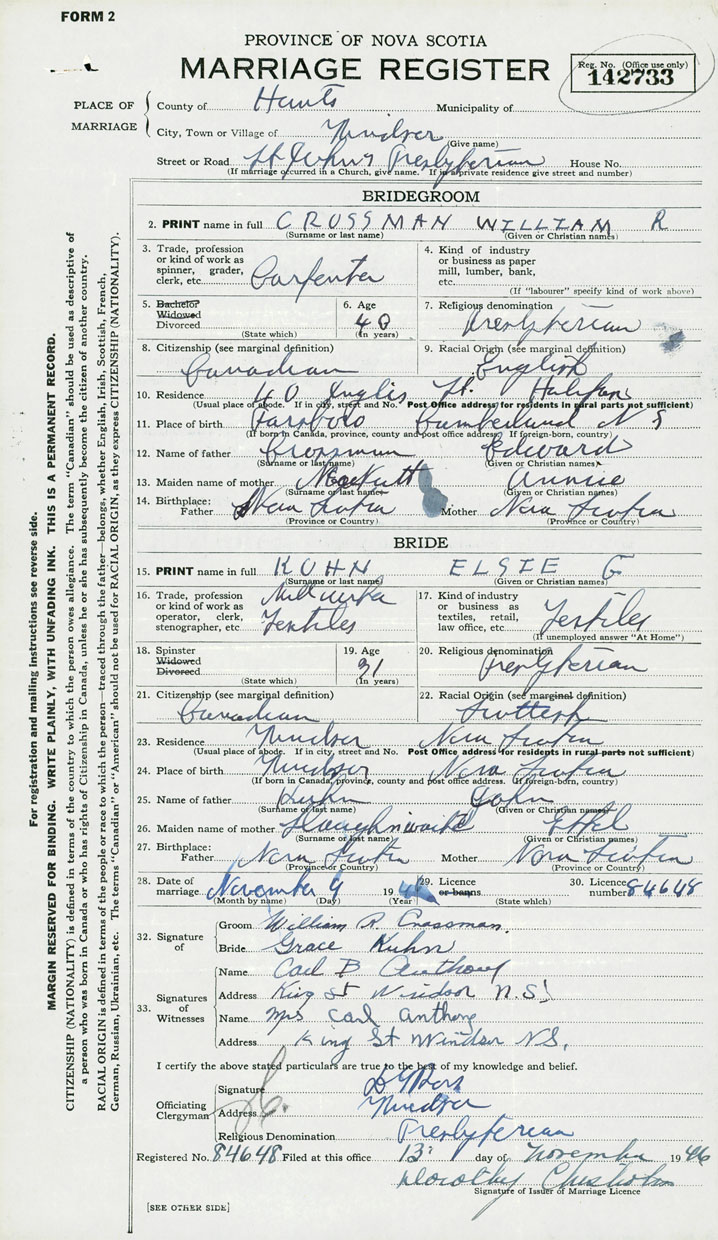 FORM 2
PROVINCE OF NOVA SCOTIA
MARRIAGE REGISTER
Reg. No. (Office use only)
142733
PLACE OF MARRIAGE
County of Hants Municipality of
City, Town or Village of Windsor
(Give name)
Street or Road St John's Presbyterian House No.
(If marriage occurred in a Church, give name. If in a private residence give street and number)
BRIDEGROOM
2. PRINT name in full CROSSMAN WILLIAM R
(Surname or last name) (Given or Christian names)
3. Trade, profession or kind of work as spinner, grader, clerk, etc. Carpenter
4. Kind of industry or business as paper mill, lumber, bank, etc.
(If "labourer" specify kind of work above)
5. Bachelor Widowed Divorced
(State which)
6. Age 40
(In years)
7. Religious denomination Presbyterian
8. Citizenship (see marginal definition) Canadian
9. Racial Origin (see marginal definition) English
10. Residence 40 Inglis St. Halifax
(Usual place of abode. If in city, street and No. Post Office address for residents in rural parts not sufficient)
11. Place of birth Parsboro Cumberland N S
(If born in Canada, province, county and post office address. If foreign-born, country)
12. Name of father Crossman Edward
(Surname or last name) (Given or Christian names)
13. Maiden name of mother Annie
(Surname or last name) (Given or Christian names)
14. Birthplace: Father Nova Scotia Mother Nova Scotia
(Province or Country) (Province or Country)
BRIDE
15. PRINT name in full KUHN ELSIE G
(Surname or last name) (Given or Christian names)
16. Trade, profession or kind of work as operator, clerk, stenographer, etc. Mill worker Textiles
17. Kind of industry or business as textiles, retail, law office, etc. Textiles
(If unemployed answer "At Home")
18. Spinster Widowed Divorced
(State which)
19. Age 31
(In years)
20. Religious denomination Presbyterian
21. Citizenship (see marginal definition) Canadian
22. Racial Origin (see marginal definition) Scottish
23. Residence Windsor Nova Scotia
(Usual place of abode. If in city, street and No. Post Office address for residents in rural parts not sufficient)
24. Place of birth Windsor Nova Scotia
(If born in Canada, province, county and post office address. If foreign-born, country)
25. Name of father Kuhn John
(Surname or last name) (Given or Christian names)
26. Maiden name of mother Ethel
(Surname or last name) (Given or Christian names)
27. Birthplace: Father Nova Scotia Mother Nova Scotia
(Province or Country) (Province or Country)
28. Date of marriage November 9 1946
(Month by name) (Day) (Year)
29. Licence or banns
(State which)
30. Licence number 84648
32. Signature of
Groom William R. Crossman.
Bride Grace Kuhn
33. Signatures of Witnesses
Name Carl B Anthony
Address King St Windsor N.S.
Name Mrs Carl Anthony
Address King St Windsor N.S.
I certify the above stated particulars are true to the best of my knowledge and belief.
Officiating Clergyman
Signature
Address Windsor
Religious Denomination Presbyterian
Registered No. 84648 Filed at this office 13 day of November 1946
Dorothy Chisholm
Signature of Issuer of Marriage Licence
[SEE OTHER SIDE]
For registration and mailing instructions see reverse side.
MARGIN RESERVED FOR BINDING. WRITE PLAINLY, WITH UNFADING INK. THIS IS A PERMANENT RECORD.
CITIZENSHIP (NATIONALITY) is defined in terms of the country to which the person owes allegiance. The term "Canadian" should be used as descriptive of
a person who was born in Canada or who has rights of Citizenship in Canada, unless he or she has subsequently become the citizen of another country.
RACIAL ORIGIN is defined in terms of the people or race to which the person—traced through the father—belongs, whether English, Irish, Scottish, French,
German, Russian, Ukrainian, etc. The terms "Canadian" or "American" should not be used for RACIAL ORIGIN, as they express CITIZENSHIP (NATIONALITY).